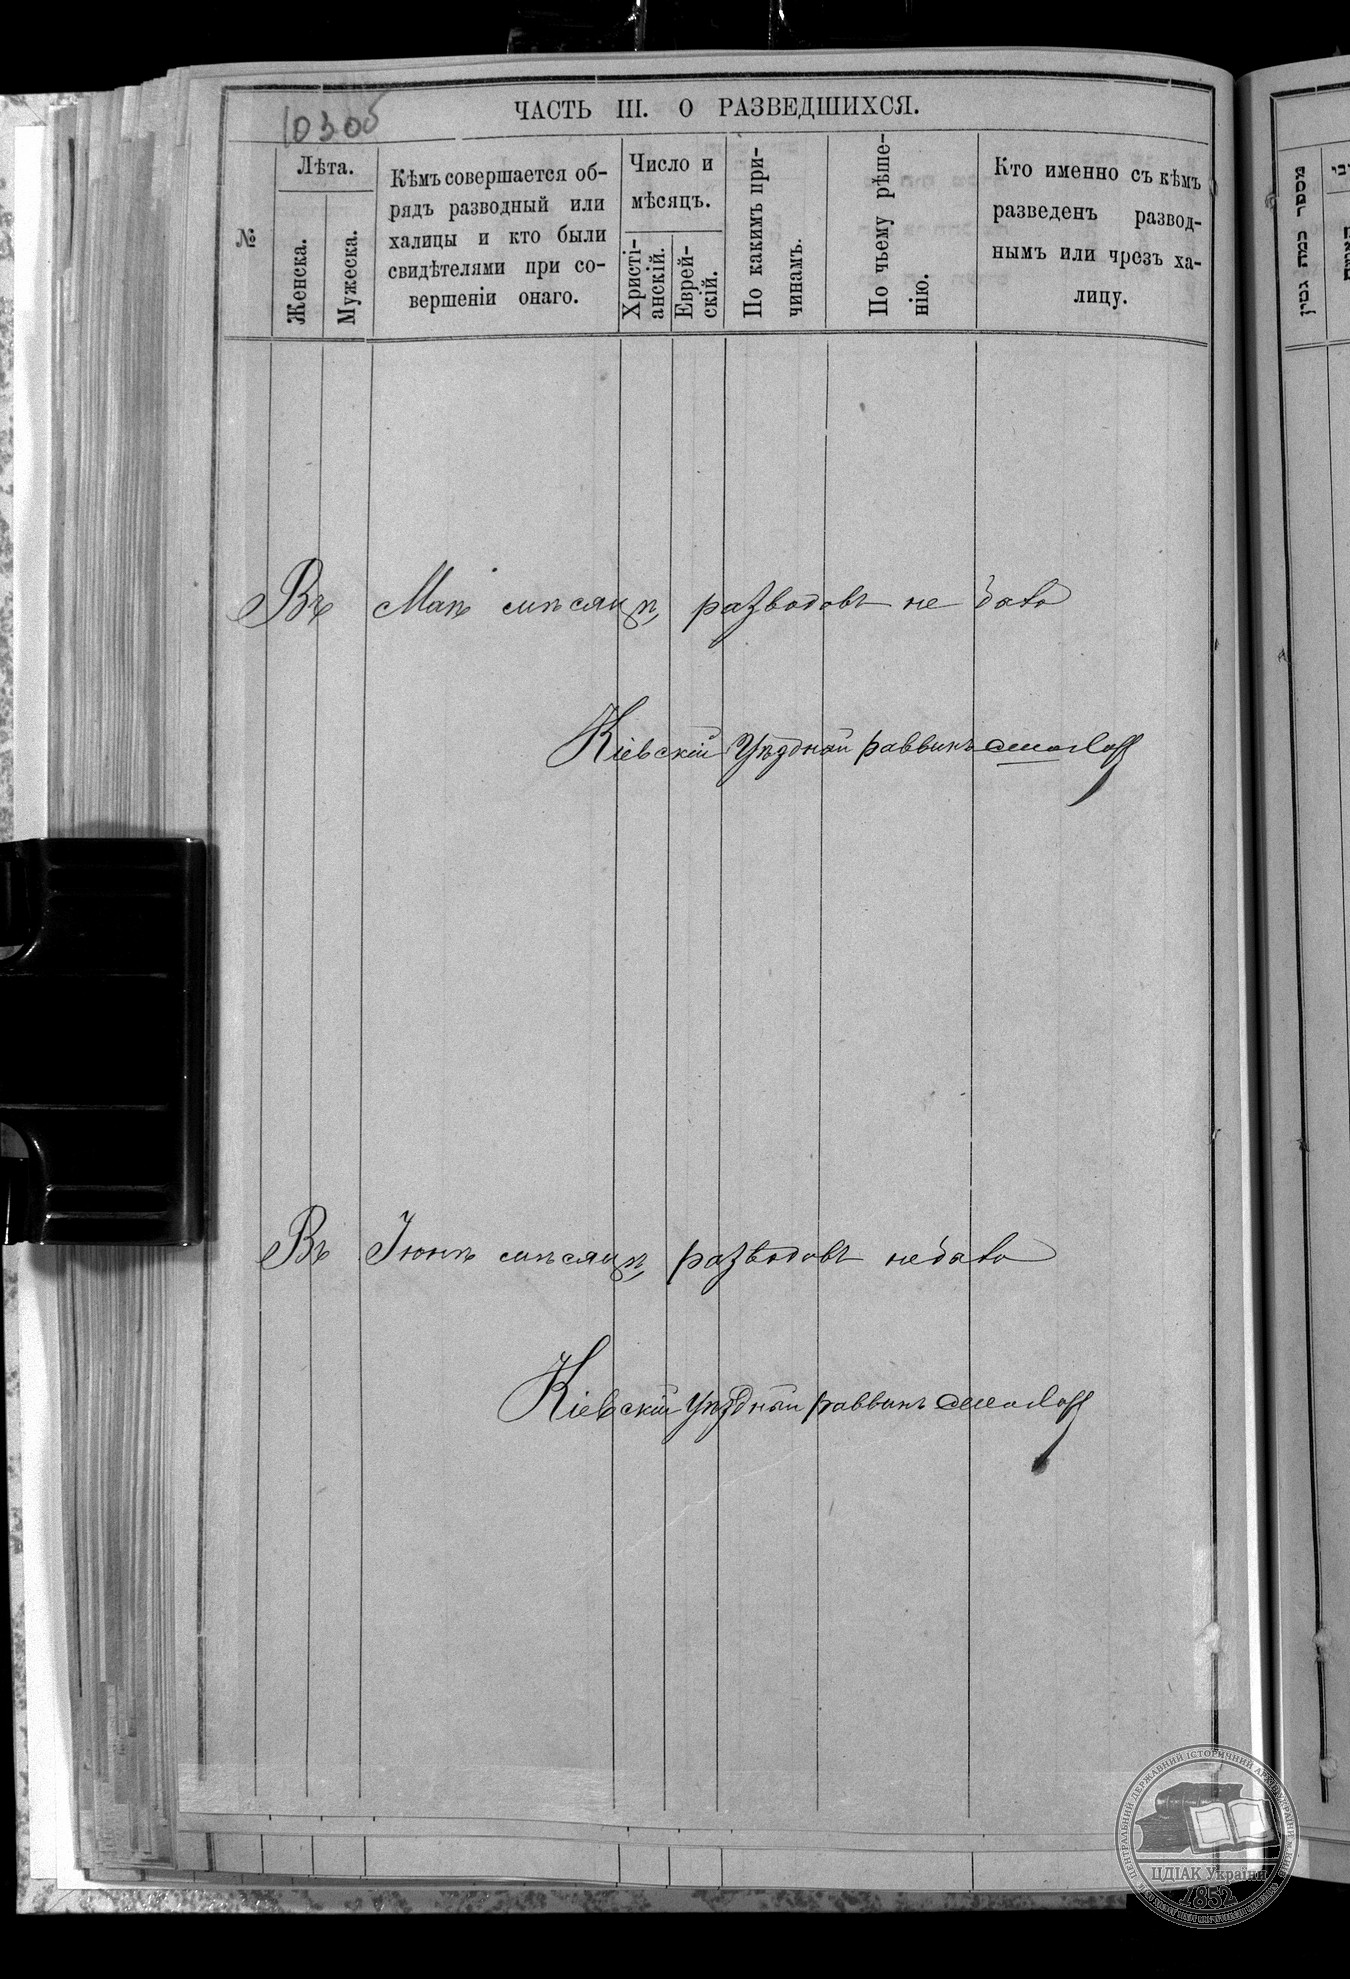 1030об
ЧАСТЬ III. О РАЗВЕДШИХСЯ.
№
Лѣта.
Женска.
Мужеска.
Кѣмъ совершается об-
рядъ разводный или
халицы и кто были
свидѣтелями при со-
вершеніи онаго.
Число и
мѣсяцъ.
Христі-
анскій.
Еврей-
скій.
По какимъ при-
чинамъ.
По чьему рѣше-
нію.
Кто именно съ кѣмъ
разведенъ развод-
нымъ или чрезъ ха-
лицу.
Въ Маѣ мѣсяцѣ разводовъ не было
Кіевскій Уѣздный раввинъ
Въ Іюнѣ мѣсяцѣ разводовъ не было
Кіевскій Уѣздный раввинъ
מספר כמה גטין
ЦЕНТРАЛЬНИЙ ДЕРЖАВНИЙ ІСТОРИЧНИЙ АРХІВ УКРАЇНИ, м. КИЇВ
ЦДІАК України
1852